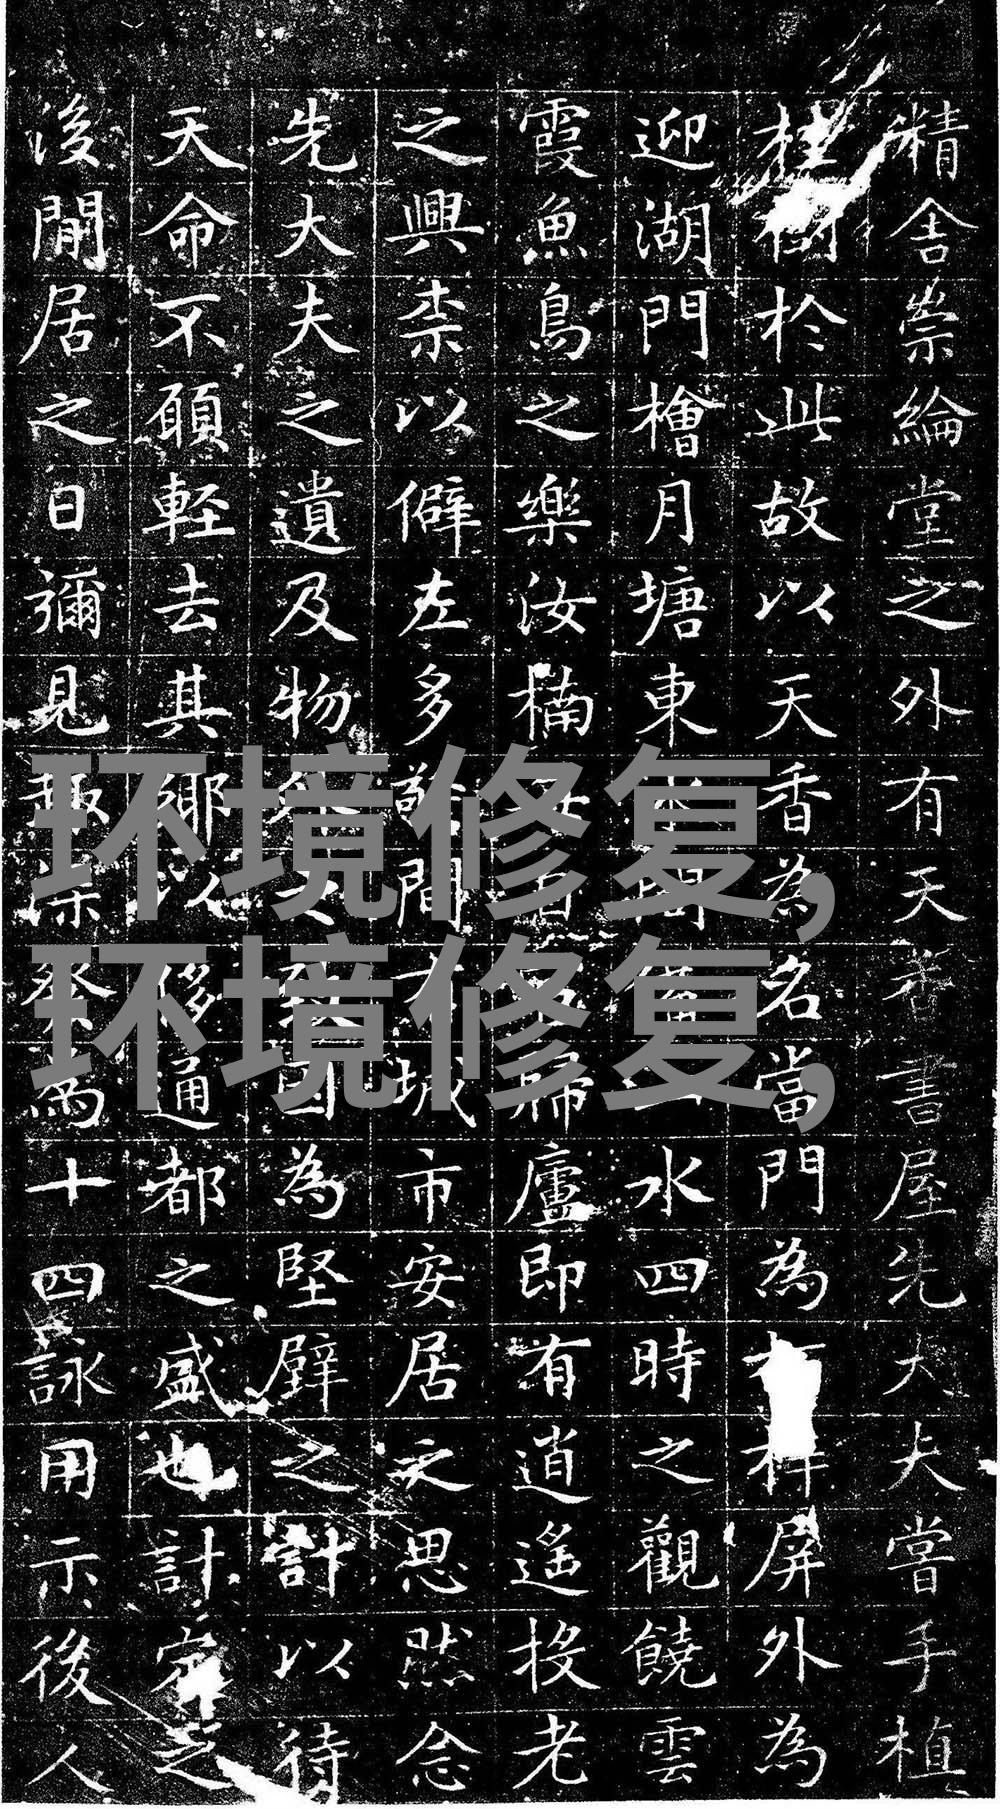 精舍崇綸堂之外有天香書屋先大夫嘗手植
桂樹於此故以天香為名當門為屏外為
迎湖門檜月塘東水四時之觀饒雲
霞魚鳥之樂汝楠歸廬即有逍遙投老
之興柰以僻左多間城市安居之思然念
先大夫之遺及物因為堅壁之計以待
天命不願輕去其鄉以侈通都之盛也計定之
後閒居之日彌見趣深發為十四詠用示後人
环境修复,
环境修复,